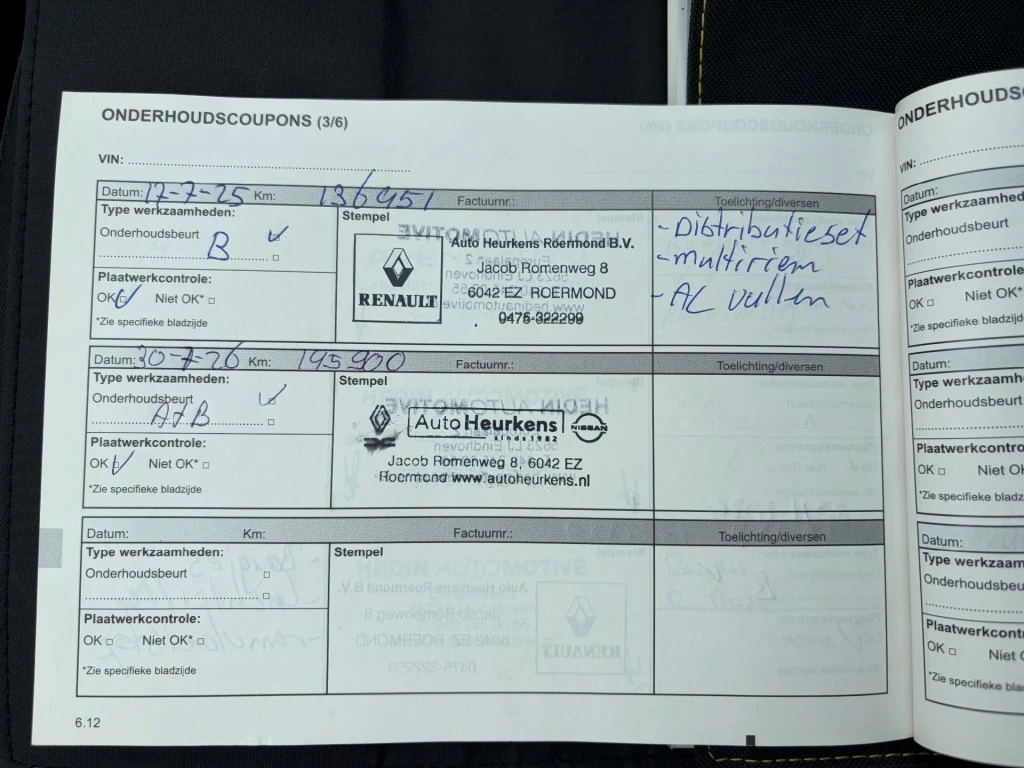 ONDERHOUDSCOUPONS (3/6)
VIN:
Datum: 17-7-25 Km: 136951 Factuurnr.: Toelichting/diversen
Type werkzaamheden:
Onderhoudsbeurt
B
Plaatwerkcontrole:
OK Niet OK*
*Zie specifieke bladzijde
Stempel
RENAULT
Auto Heurkens Roermond B.V.
Jacob Romenweg 8
6042 EZ ROERMOND
0475-322299
- Distributieset
- multiriem
- AC vullen
Datum: 30-7-26 Km: 145900 Factuurnr.: Toelichting/diversen
Type werkzaamheden:
Onderhoudsbeurt
A+B
Plaatwerkcontrole:
OK Niet OK*
*Zie specifieke bladzijde
Stempel
Auto Heurkens
sinds 1982
NISSAN
Jacob Romenweg 8, 6042 EZ
Roermond www.autoheurkens.nl
Datum: Km: Factuurnr.: Toelichting/diversen
Type werkzaamheden:
Onderhoudsbeurt
Plaatwerkcontrole:
OK Niet OK*
*Zie specifieke bladzijde
Stempel
6.12
ONDERHOUDSC
VIN:
Datum:
Type werkzaamhed
Onderhoudsbeurt
Plaatwerkcontrole
OK Niet OK*
*Zie specifieke bladz
Datum:
Type werkzaamh
Onderhoudsbeu
Plaatwerkcontro
OK Niet Ok
*Zie specifieke bla
Datum:
Type werkzaam
Onderhoudsbeu
Plaatwerkcont
OK Niet
*Zie specifieke bla